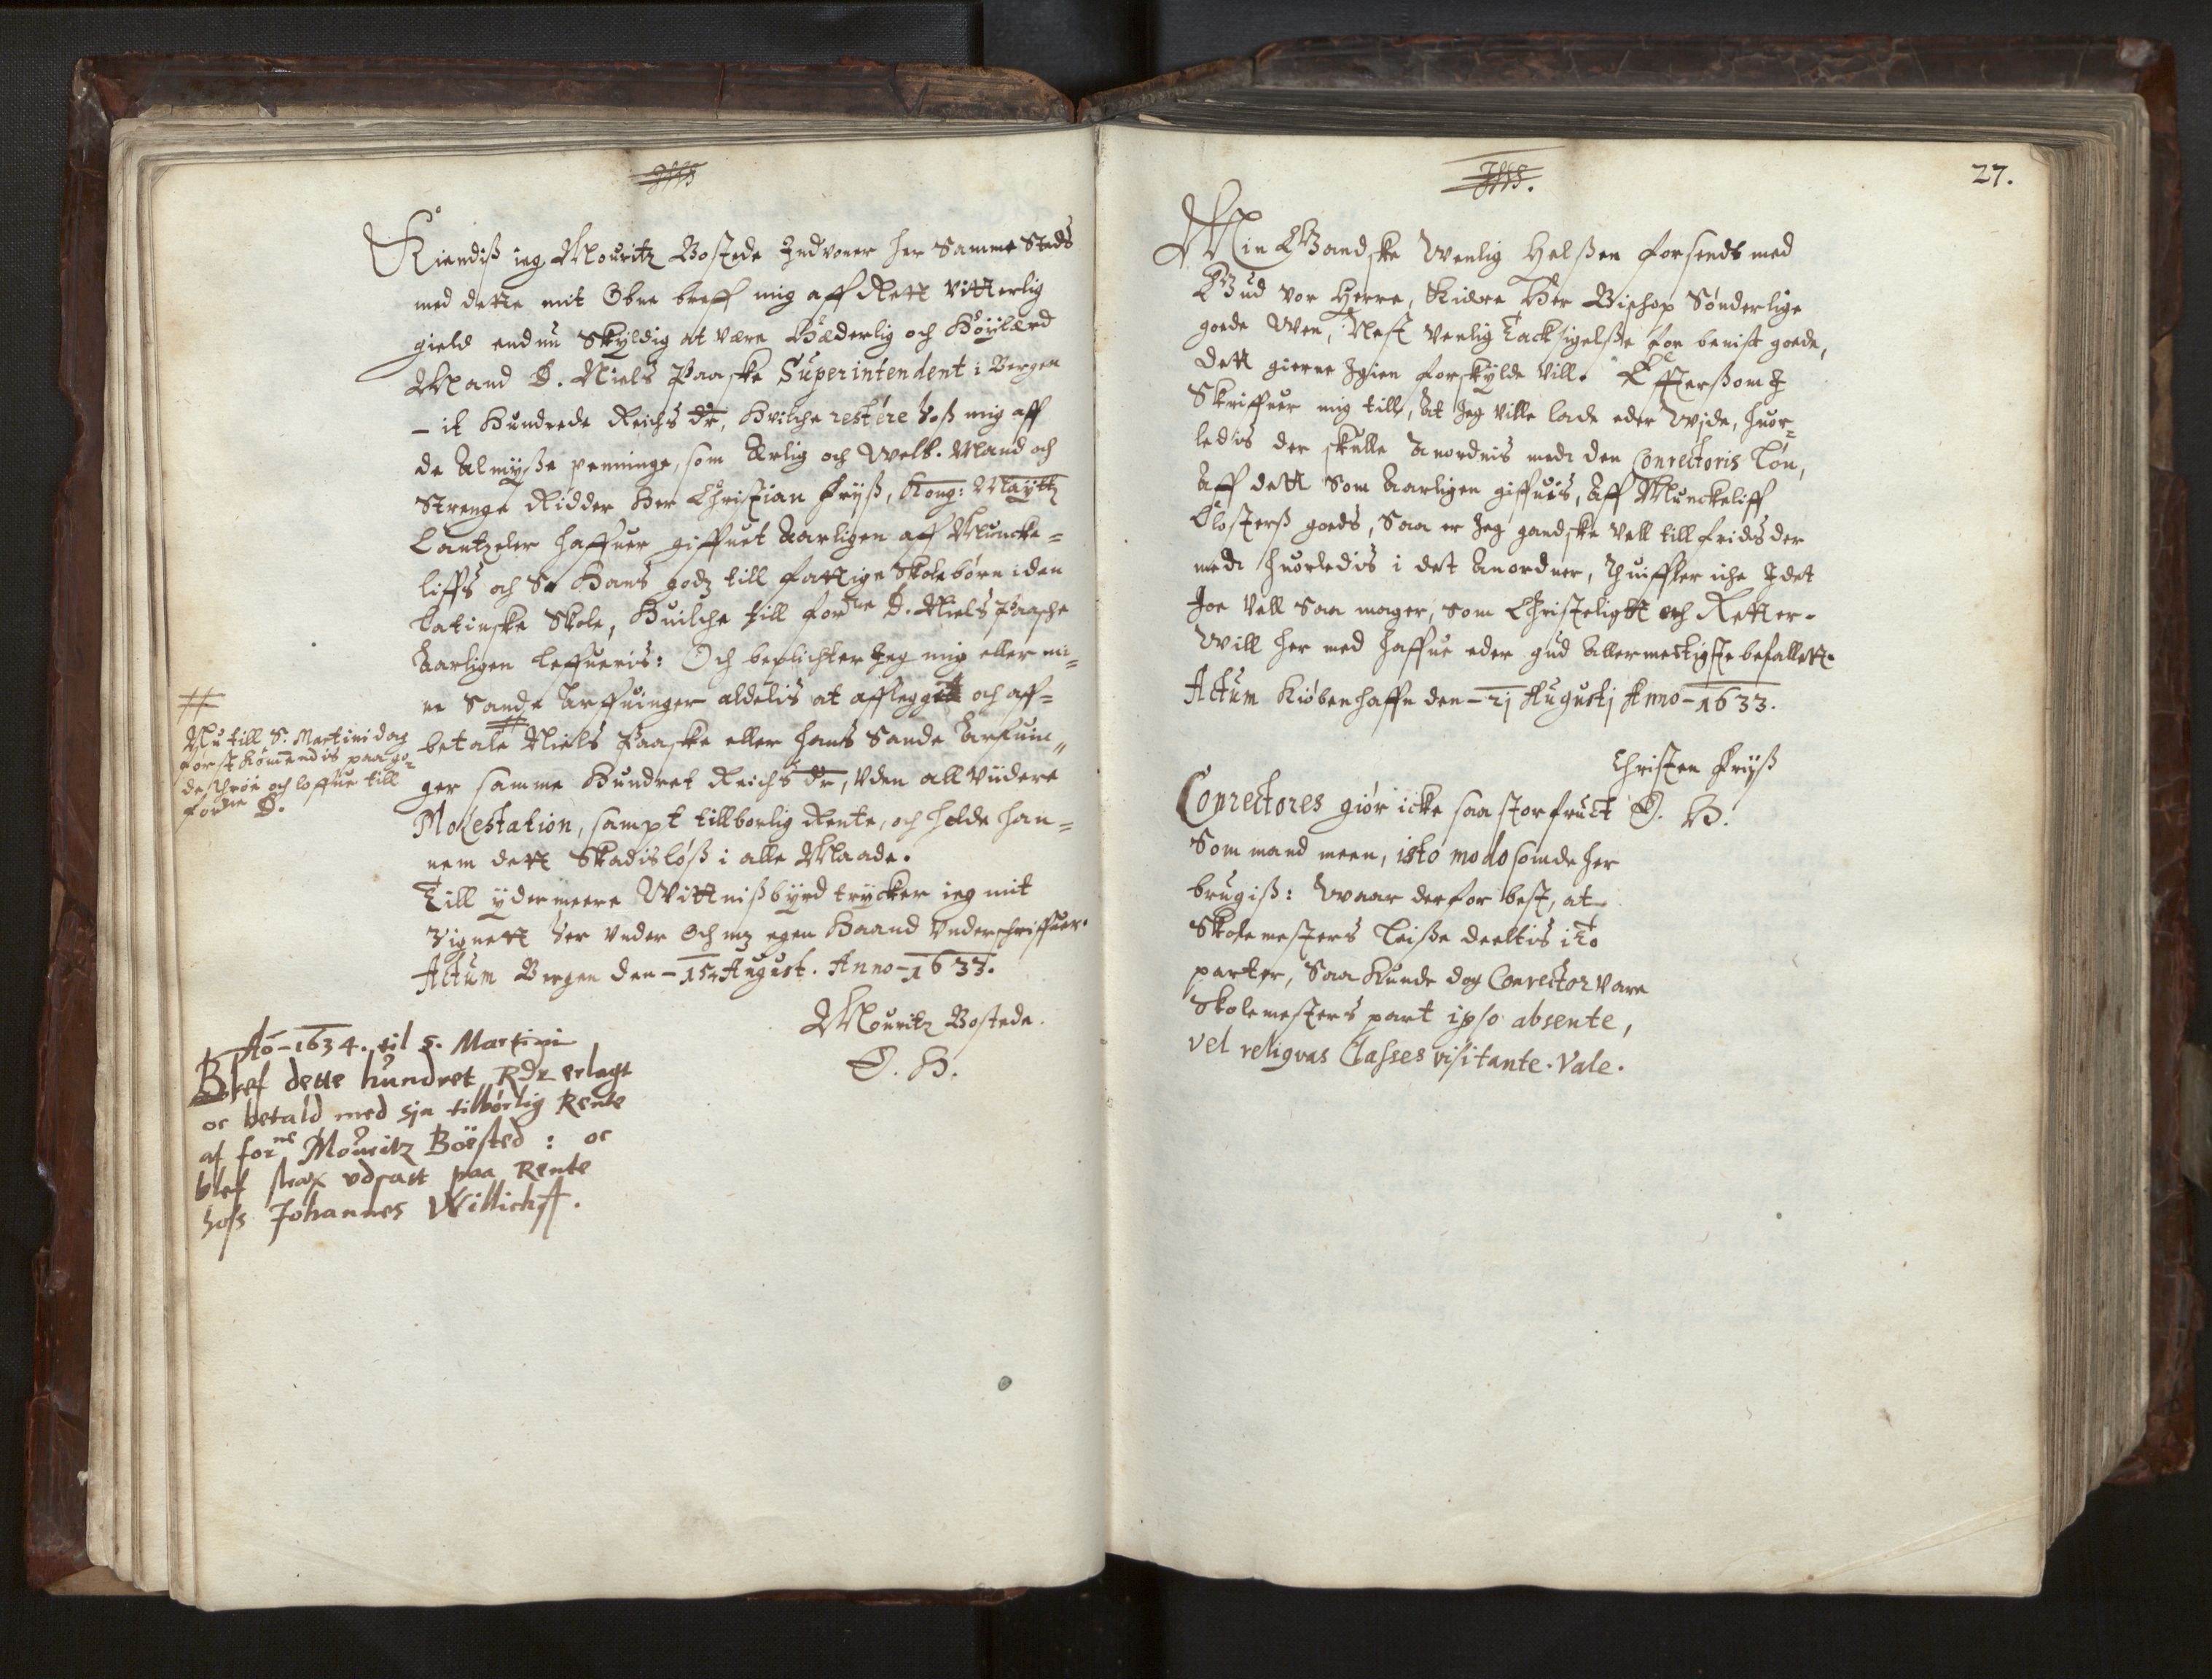 Kiendiß ieg Mouritz Bostede Indvoner her Samme Steds
med dette mit Obne breff mig aff Rett vitterlig
gield endnu Skyldig at være Hæderlig och Høylærd
Mand D. Niels Paaske Superintendent i Bergen
– it Hundrede Reichs dr, Hvilche restere hoß mig aff
de Almyße penninge, som Ærlig och Welb. Mand och
Strenge Ridder Her Christian Friß, Kong: Maytts
Cantzeler haffuer giffuet Aarligen aff Muncke=
liffs och S. Hans godz till fattige Skolebørn i den
latinske Skole, Huilche till forne D. Niels Paasche
Aarligen leffueris: Och beplichter Jeg mig eller mi=
ne Sande Arffuinger aldelis at afflegge och aff=
betale Niels Paaske eller hans Sande Arfuin„
ger samme Hundret Reichs dr, Uden all viidere
Molestation, sampt tillborlig Rente, och holde han=
nem dett Skadisløß i alle Maade.
Till ydermeere Vittnißbyrd trycker ieg mit
Signett her under Och mz egen Haand Underschriffuer.
Actum Bergen den – 15 August. Anno – 1633.
Mouritz Bostede.
E. H.
Nu till S. Martini dag
først komendis paa go=
de
forne D.
Ao – 1634. til S. Martini
Blef dette hundret Rdr erlagt
oc betald med sin tilbørlig Rente
af forne Mouritz Böested: oc
blef strax udsatt paa Rente
hoss Johannes Willichst.
27.
Min Gandske Venlig Helßen forsendt med
Gud vor Herre, Kiære Her Bishop Sønderlige
goede Wen, Nest venlig Tacksigelße for beuist goede,
dett gierne Igien forskylde vill. Effterßom I
Skriffuer mig till, at Jeg ville lade eder Vide, huor=
ledis der skulle anordnis med den Conrectoris Løn,
Aff dett som Aarligen giffuis, aff Munckeliff
Closterß goeds, Saa er Jeg gandske vell till frids der
med huorledis i det Anordner, thuiffler iche I det
Joe vell saa mager, som Christeligtt och Rett er.
Will her med haffue eder gud Allermectigste befallett.
Actum Kiøbenhaffn den – 21 Augusti Anno – 1633.
Christen Friiß
E. H.
Conrectores giør icke saa stor fruct
Som mand meen, isto modo som de her
brugiß: Waar derfor best, at
Skolemesters Leiße deeltis i to
parter, Saa kunde dog Conrector vare
Skolemesters part ipso absente,
vel reliqvas Classes visitante. Vale.